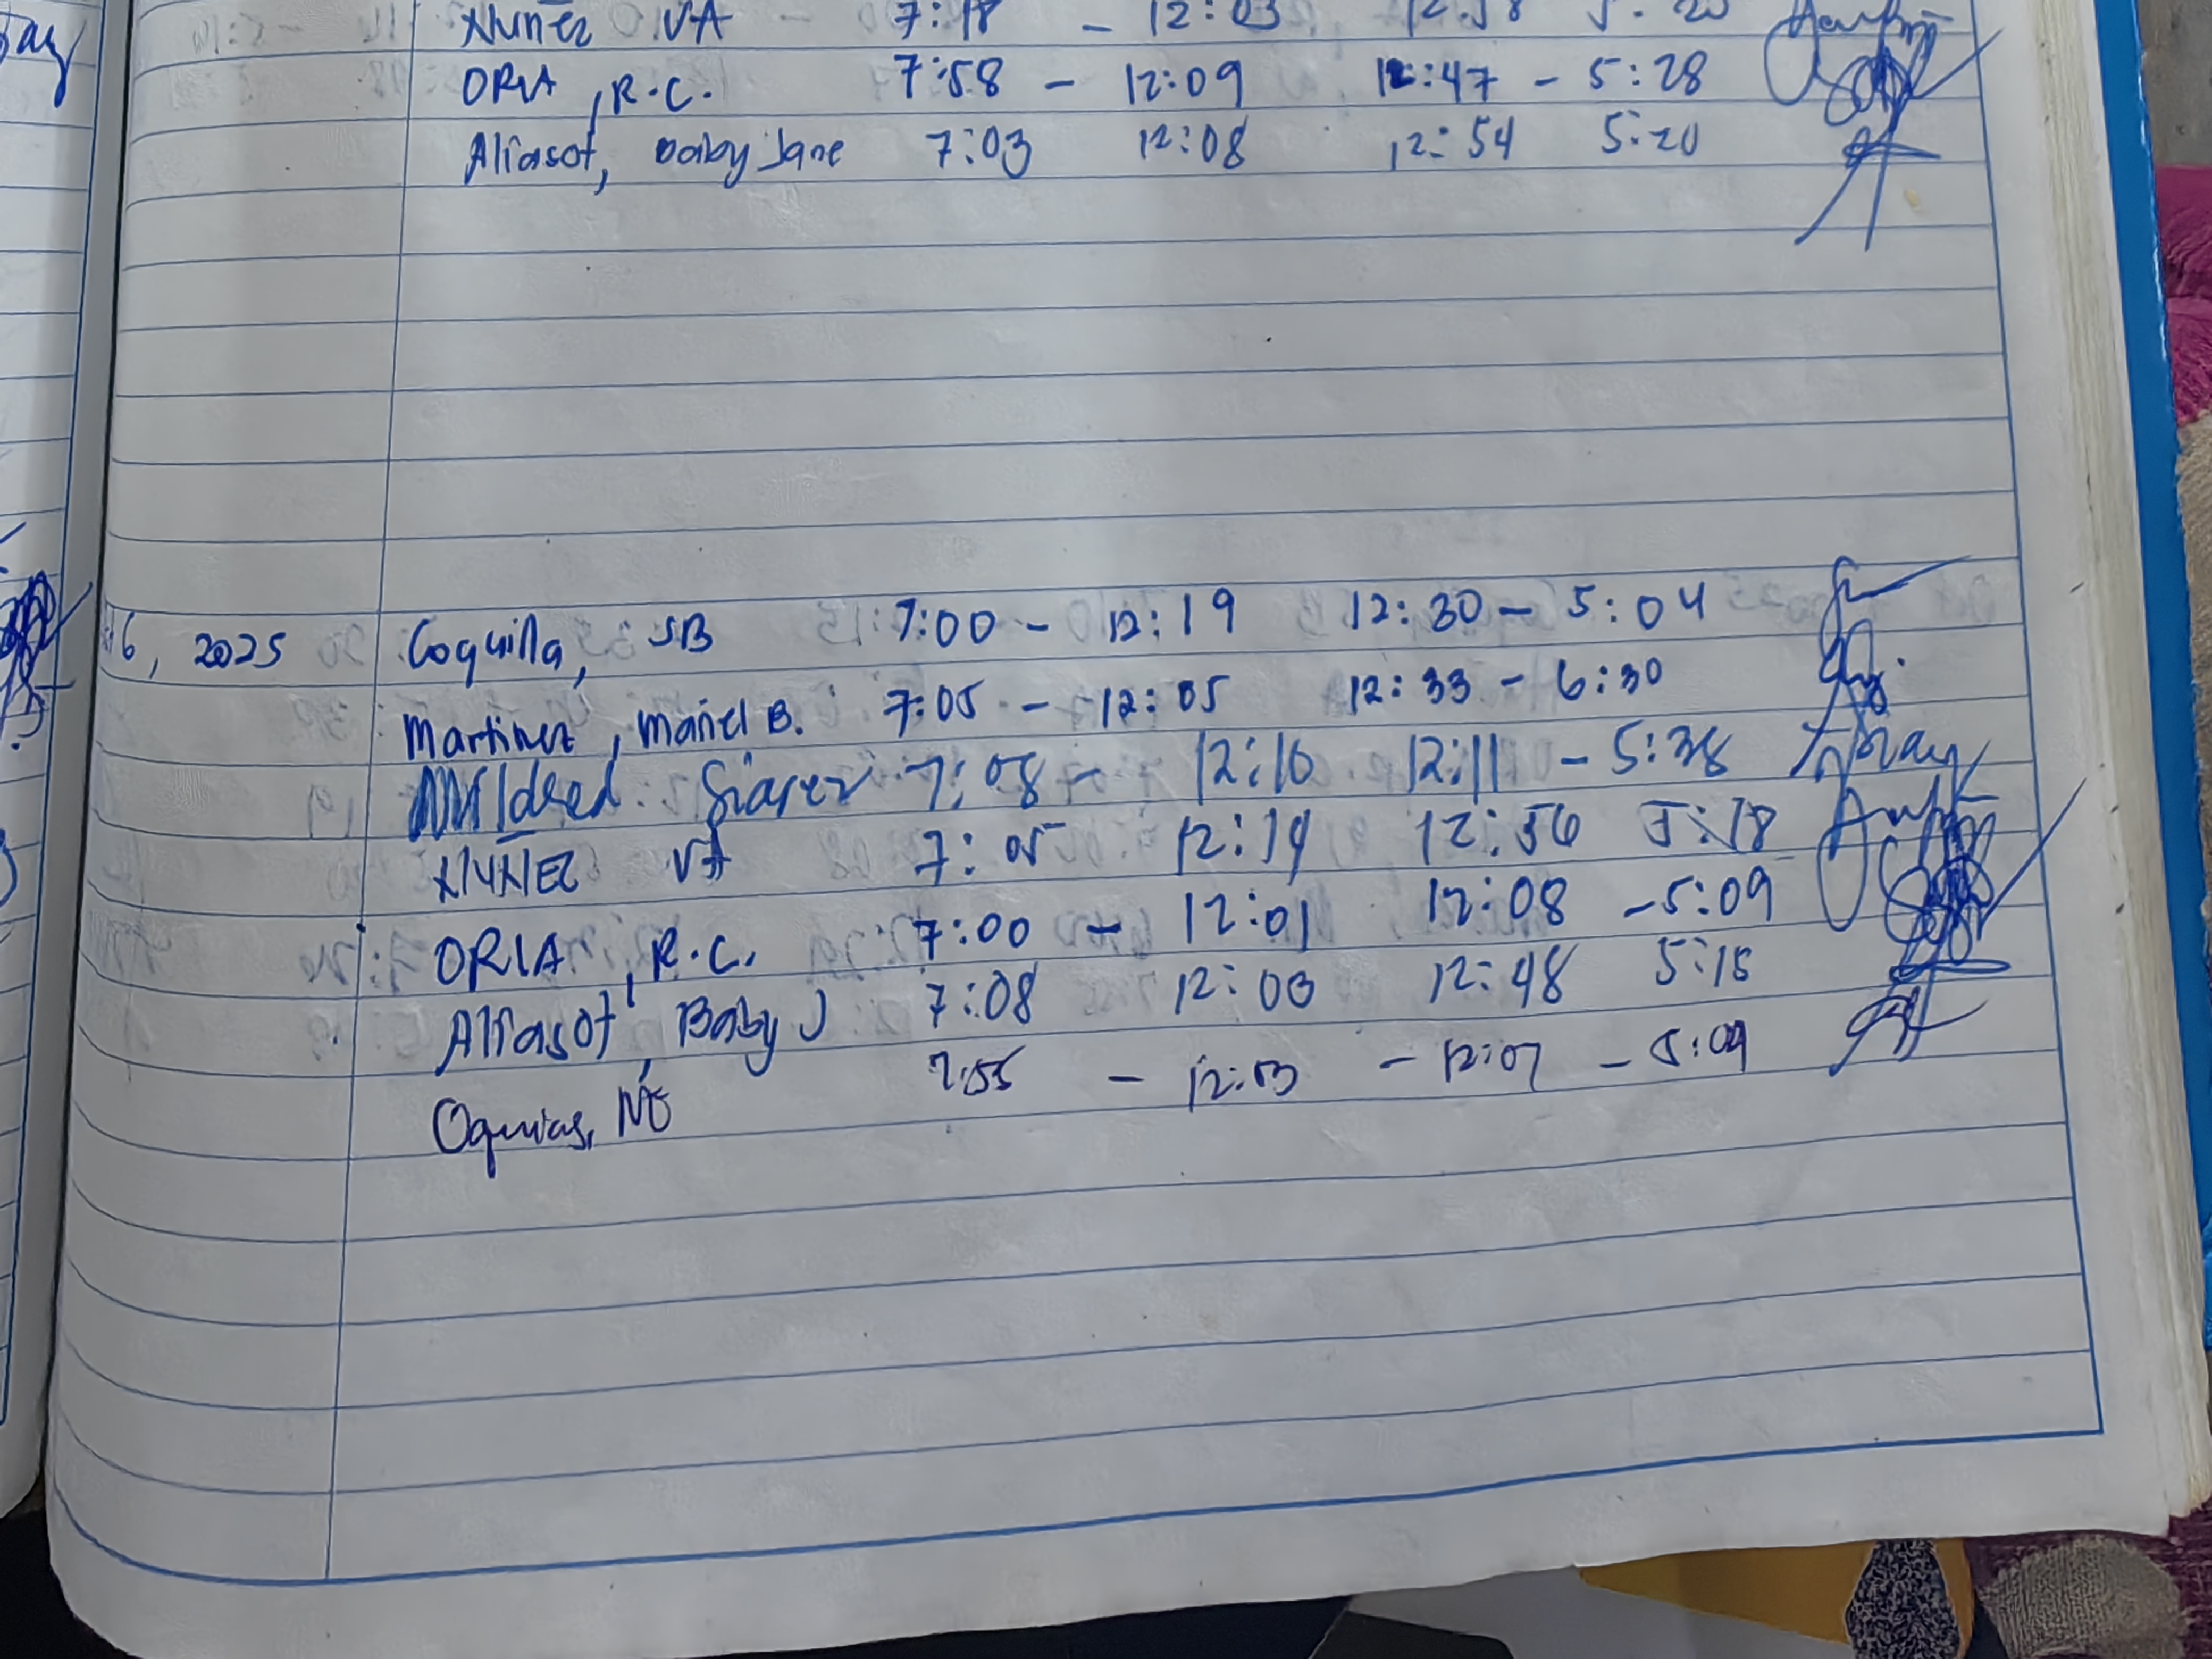 Nuñez VA 7:18 - 12:03 12:58 5:20
ORIA, R.C. 7:58 - 12:09 12:47 - 5:28
Aliasot, Baby Jane 7:03 12:08 12:54 5:20
6, 2025 Coquilla, JB 7:00 - 12:19 12:30 - 5:04
Martinez, Mariel B. 7:05 - 12:05 12:33 - 6:30
Mildred 7:08 - 12:10 12:11 - 5:38
NUÑEZ VA 7:05 12:14 12:56 5:18
ORIA, R.C. 7:00 - 12:01 12:08 - 5:09
Aliasot, Baby J 7:08 12:03 12:48 5:15
Oquias, 7:55 - 12:03 - 12:07 - 5:09